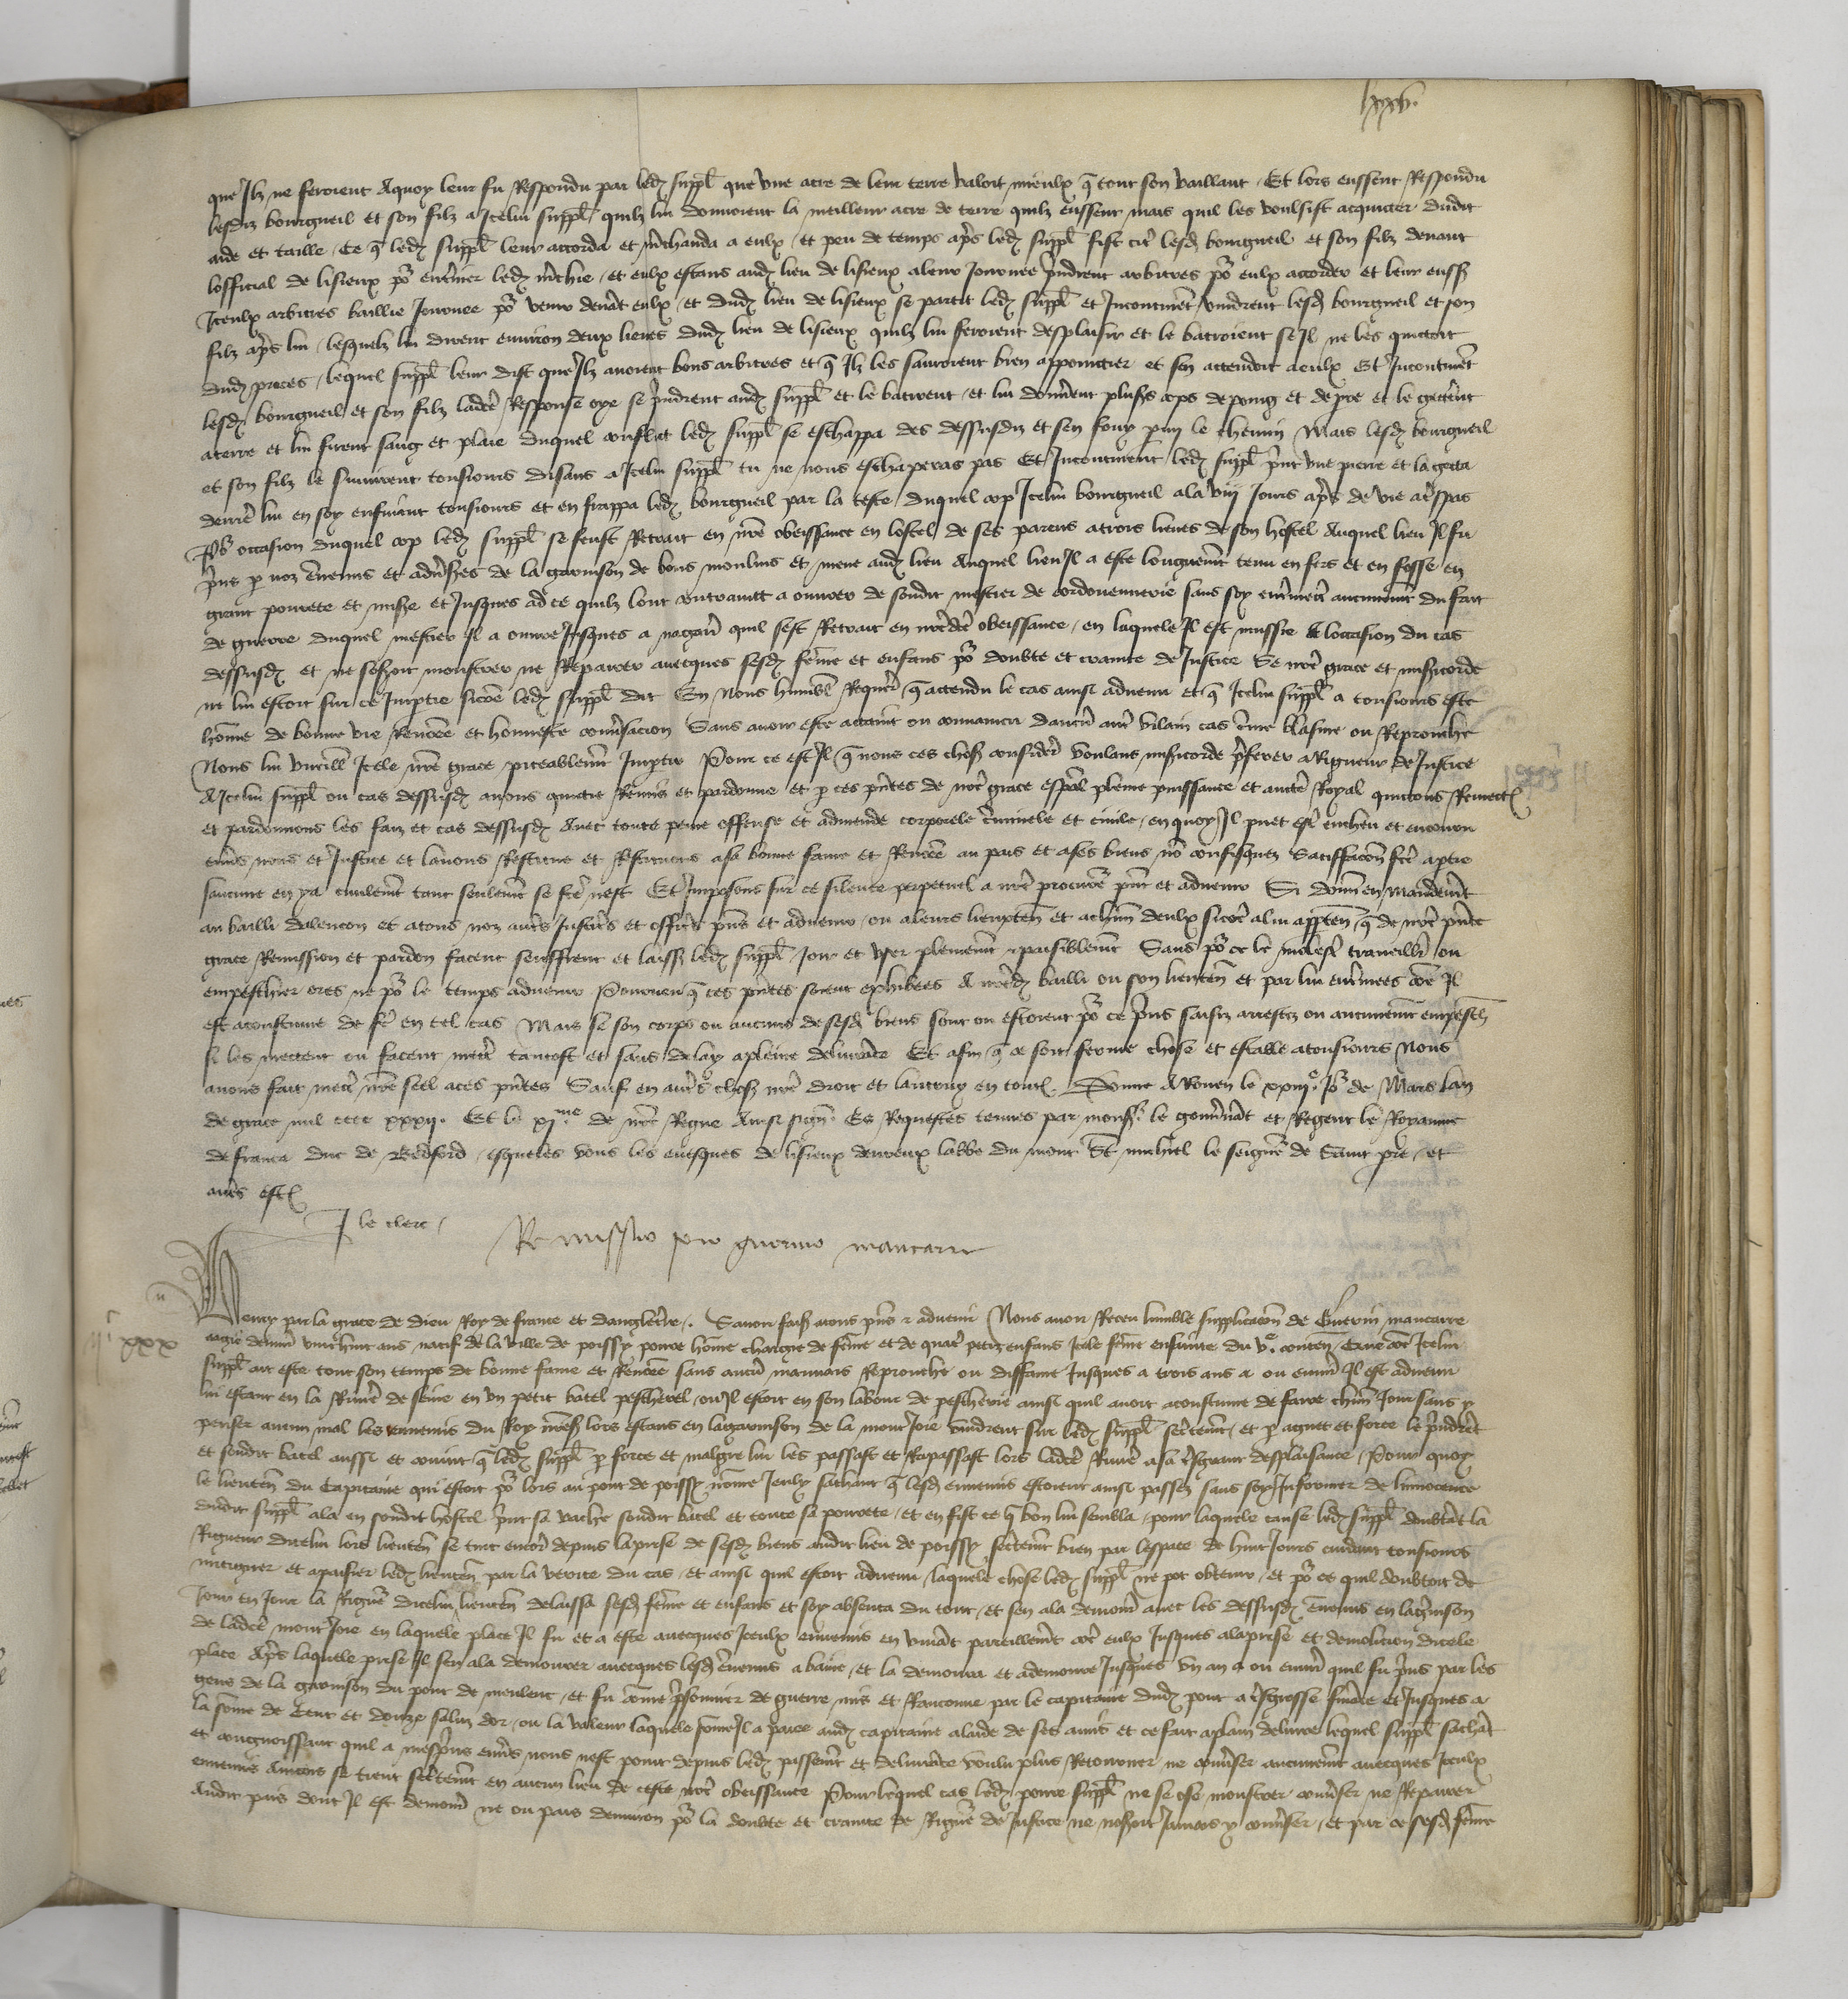 lxxv.
que Ilz ne feroient Aquoy leur fu Respondu par led suppl que une acre de leur terre valoit mieulx q tout son vaillant Et lors eussent Respondu
lesdiz bourgueil et son filz a Icelui suppl quilz lui donrroient la meilleur acre de terre quilz eussent mais quil les voulsist acquicter dudit
aide et taille Ce q led suppl leur accorda et mchanda a eulx et peu de temps aps led suppl fist citer lesd bourgueil et son filz devant
lofficial de lisieux po enteriner led mchie et eulx estans aud lieu de lisieux aleur Journee prindrent arbitres po eulx accorder et leur eussent
Iceulx arbitres baillie Journee po venir devat eulx et dud lieu de lisieux se partit led suppl et Incontinet vindrent lesd bourgueil et son
filz aps lui lesquelz lui dirent environ deux lieues dud lieu de lisieux quilz lui feroient desplaisir et le batroient se Il ne les quictoit
dud proces lequel suppl leur dist que Ilz avoient bons arbitres et q Ilz les sauroient bien appoinctier et sen actendoit a eulx Et Incontinet
lesd bourgueil et son filz ladce Response oye se prindrent aud suppl et le batirent et lui donnerent plusrs cops de poing et de pie et le getterent
aterre et lui firent sang et plaie duquel conflict led suppl se eschappa des dessusdiz et sen fouy par le chemin Mais lesd bourgueil
et son filz le suivirent tousiours disans a Icelui suppl tu ne nous eschaperas pas Et Incontinent led suppl print une pierre et la gecta
derriere lui en soy enfuiant tousiours et en frappa led bourgueil par la teste duquel cop Icelui bourgueil ala viij Jours aps de vie a trespas
Po occasion duquel cop led suppl se feust Retrait en nre obeissance en lostel de ses parens a trois lieues de son hostel Auquel lieu Il fu
prins p noz ennemis et adversres de la garnison de bons moulins et mene aud lieu Auquel lieu Il a este longuement tenu en fers et en fosse en
grant povrete et misere et Jusques ad ce quilz lont contraint a ouvrer de sondit mestier de cordouennerie sans soy entremectre aucunement du fait
de guerre duquel mestier Il a ouvre Jusques a nagaires quil sest Retrait en nredce obeissance en laquele Il est mussie A loccasion du cas
dessusd et ne se oseroit monstrer ne Reparer avecques sesd feme et enfans po doubte et crainte de Justice Se nre grace et misericorde
ne lui estoit sur ce Impartie sicome led suppl dit En Nous humbl Requer q attendu le cas ainsi advenu et q Icelui suppl a tousiours este
home de bonne vie Renomee et honneste conversacion Sans avoir este attaint ou convaincu daucun autre vilain cas crime blasme ou Reprouche
Nous lui vueillons Icele nre grace piteablement Impartir Pour ce est Il q nous ces choses considerees voulans misericorde preferer a Rigueur de Justice
A Icelui suppl ou cas dessusd avons quictie Remis et pardonne et p ces presentes de nre grace especial pleine puissance et aucte Royal quictons Remectons
et pardonnons les faiz et cas dessusd Avec toute peine offense et admende corporele criminele et civile en quoy Il puet estre encheu et encouru
envers nous et Justice et lavons Restitue et Restituons a sa bonne fame et Renomee au pais et a ses biens non confisquez Satisfaccion fce a partie
saucune en y a civilement tant seulement se fce nest Et Imposons sur ce silence perpetuel a nre procureur present et advenir Si donnons en mandement
au bailli dalencon et a tous noz autres Justiciers et officiers presens et advenir ou a leurs lieuxtenans et a chacun deulx sicome a lui appartendra q de nre presente
grace Remission et pardon facent seuffrent et laissent led suppl Joir et user plainement et paisiblement Sans po ce le molester traveillier ou
empeschier ores ne po le temps advenir Pourveu q ces presentes soient exhibees A nred bailli ou son lieutenant et par lui enterinees come Il
est acoustume de fe en tel cas Mais se son corps ou aucuns de sesd biens sont ou estoient po ce prins saisiz arrestez ou aucunement empeschiez
si les mectent ou facent mectre tantost et sans delay a pleine delivrance Et afin q ce soit ferme chose et estable a tousiours Nous
avons fait mectre nre seel a ces presentes Sauf en autres choses nre droit et lautruy en toutes. Donne A Rouen le xxiije Jour de Mars lan
de grace mil cccc xxxij. Et le xjme de nre Regne Ainsi signe Es Requestes tenues par monsr le gouvernant et Regent le Royaume
de france duc de Bedford esqueles vous les evesques de lisieux devreux labbe du mont St michiel le seigneur de Saint pere et
autres estiez
J le clerc
Remissio pro guerino maucarre
iic xxx
Henry par la grace de dieu Roy de france et dangleterre. Savoir faisons a tous presens et advenir Nous avoir Receu lumble supplicacion de Guerin maucarre
aagie denviron vint huit ans natif de la ville de poissy povre home chargie de feme et de quatre petiz enfans Icele feme ensainte du ve contenant come Icelui
suppl ait este tout son temps de bonne fame et Renomee sans aucun mauvais Reprouche ou diffame Jusques a trois ans a ou environ Il est advenu
lui estant en la Riviere de seine en un petit batel pescherel ou Il estoit en son labour de pescherie ainsi quil avoit acoustume de faire chacun Jour sans y
penser aucun mal les ennemis du Roy nress lors estans en la garnison de la mont Joie vindrent sur led suppl secretement et p aguet et force le prindrent
et sondit batel aussi et convint q led suppl p force et malgre lui les passast et Rapassast lors ladce Riviere a sa tresgrant desplaisance Pour quoy
le lieutenant du Capitaine qui estoit po lors au pont de poissy nomme Jenly sachant q lesd ennemis estoient ainsi passez sans soy Informer de linnocence
dudit suppl ala en sondit hostel print sa vache sondit batel et toute sa povrete et en fist ce q bon lui sembla pour laquele cause led suppl doubtat la
Rigueur dicelui lors lieutenant se tint encores depuis la prise de sesd biens audit lieu de poissy secretement bien par lespace de huit Jours cuidant tousiours
mitiguer et apaisier led lieutenant par la verite du cas et ainsi quil estoit advenu laquele chose led suppl ne pot obtenir et po ce quil doubtoit de
Jour en Jour la Rigueur dicelui lieutenant delaissa sesd feme et enfans et soy absenta du tout et sen ala demourer avec les dessusd ennemis en la garnison
de ladce mont Joie en laquele place Il fu et a este avecques Iceulx ennemis en vivat pareillement come eulx Jusques a la prise et demolicion dicele
place Aps laquele prise Il sen ala demourer avecques lesd ennemis a baine et la demoura et a demoure Jusques un an a ou environ quil fu prins par les
gens de la garnison du pont de meulent et fu come prisonnier de guerre mis et Ranconne par le capitaine dud pont a tresgrosse finance et Jusques a
la some de Cent et douze saluz dor ou la valeur laquele some Il a paiee aud capitaine a laide de ses amis et ce fait a plain delivre lequel suppl sachat
et congnoissant quil a mesprins envers nous nest point depuis led paiement et delivrance voulu plus Retourner ne converser aucunement avecques Iceulx
ennemis Aincois se tient secretement en aucun lieu de ceste nre obeissance Pour lequel cas led povre suppl ne se ose monstrer converser ne Reparer
Audit pais dont Il est demoure ne ou pais denviron po la doubte et crainte de Rigueur de Justice ne noseroit Jamais y converser et par ce sesd feme